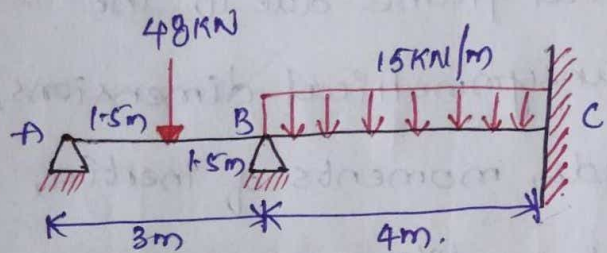 48KN
15KN/m
A
1.5m
B
C
1.5m
3m
4m.